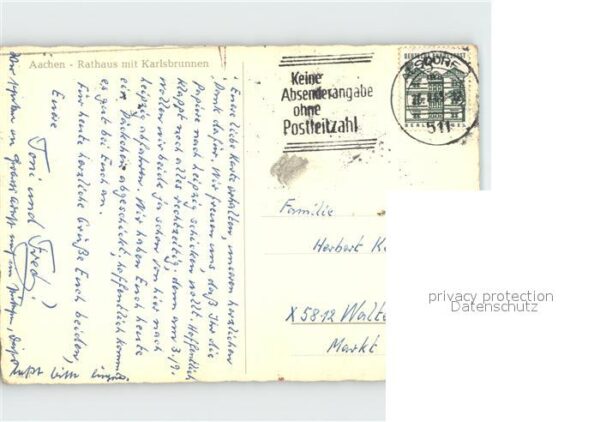 Aachen - Rathaus mit Karlsbrunnen
Eure liebe Karte erhalten, unseren herzlichen
Dank dafür. Wir freuen uns, daß Ihr die
Papiere nach Leipzig schicken wollt. Hoffentlich
klappt noch alles rechtzeitig, denn am 3.9.
wollen wir beide ja schon von hier nach
Leipzig abfahren. Wir haben Euch heute
ein Päckchen abgeschickt, hoffentlich kommt
es gut bei Euch an.
Für heute herzliche Grüße Euch beiden,
Eure
Toni und Fred
bitte
Keine
Absenderangabe
ohne
Postleitzahl
DEUTSCHE BUNDESPOST
ALSDORF
511
Familie
Herbert K
X5812 Walte
Markt
privacy protection
Datenschutz